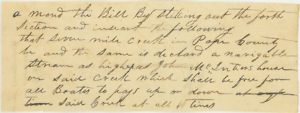 a mend the Bill By Striking out the forth
Section and insert the following
that Seven mile Creek in Pope County
be and the Same is declard a navigable
Stream as high as John house
on Said Creek which Shall be free for
all Boats to pass up or down at any
time Said Creek at all times